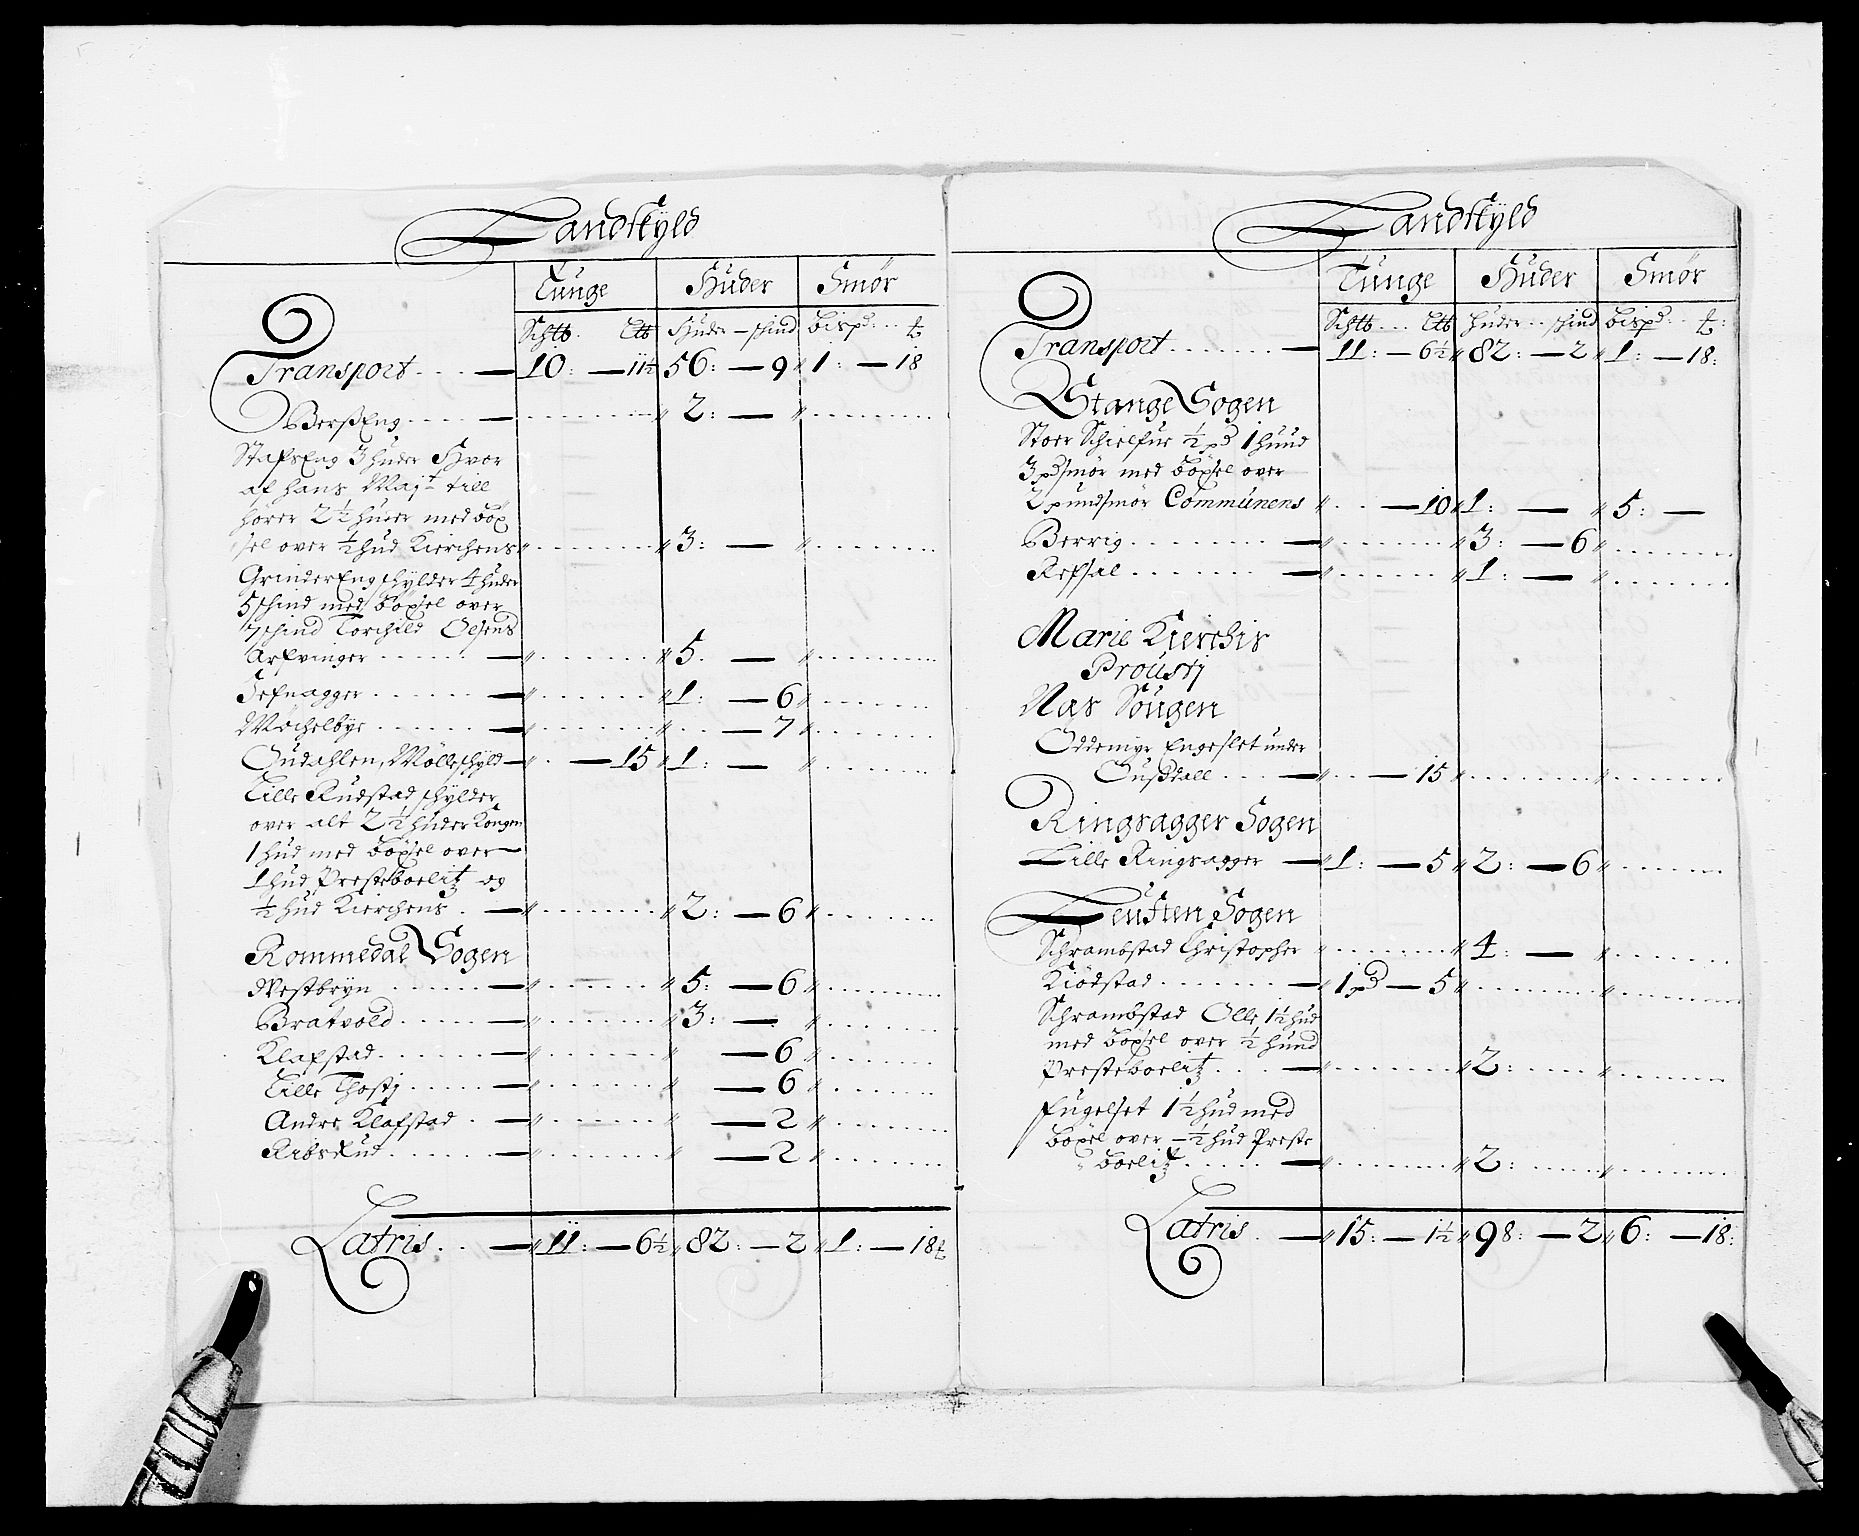 Landskyld
Tunge Huder Smør
Schtb. Ltb Huder – skind bispd: ..
Transport .... — 10: — 11½ 56: — 9 " 1: — 18
BersEng .... — 2: —
StafsEng 3 huder Hvor
af hans Majt till
hører 2½ huder med böx
sel over ½ hud Kierchens " 3: —
GrinderEng schylder 4 huder
5 schind med böxsel over
7 schind Torchild Olsens
Arfvinger .... — " 5. —
Jefnagger .... — " 1: — 6
Mochelbye .... — " — 7
Oudahlen, Mølleschyld — " — 15 " 1: —
Lille Rudstad schylder
over alt 2½ huder Kongen
1 hud med böxsel over —
1 hud Presteboelitz og
½ hud Kierchens . — " 2: — 6
Rommedal Sogen
Westbryn .... — " 5: — 6
Bratvold .... — " 3: —
Klafstad .... — " — 6
Lille Thostj .... — " — 6
Andre Klafstad . — " — 2
Ribsrud .... — " — 2
Latris .. — " 11: — 6½ " 82: — 2 " 1: — 18
Landskyld
Tunge Huder Smør
Schtb ... Ltb huder .. skind bispd: ..
Transport ...... — 11: — 6½ " 82: — 2 " 1: — 18:
Stange Sogen
Stoer Schielfue ½ pd 1 huud
3 pd smör med böxsel over
2 pund smör Communens " .. — 10 " 1: — " 5: —
Berrig .... — " 3: — 6
Refsal .... — " 1: —
Marie Kierchis
Proustj
Nas Sougen
Oddenige Engeslet under
Oußdall ... — " .. — 15
Ringsagger Sogen
Lille Ringsagger — " 1: — 5 " 2: — 6
Leuften Sogen
Schrambstad Christopher " 4: —
Kiödstad .... — " 1 pd — 5
Schrambstad Olle 1½ hud
med böxsel over ½ hund
Presteboelitz ... — " 2:
Fugelset 1½ hud med
böxel over – ½ hud Preste
" boelitz .... — " 2:
Latris . — " 15: — 1½ " 98: — 2 " 6: — 18: